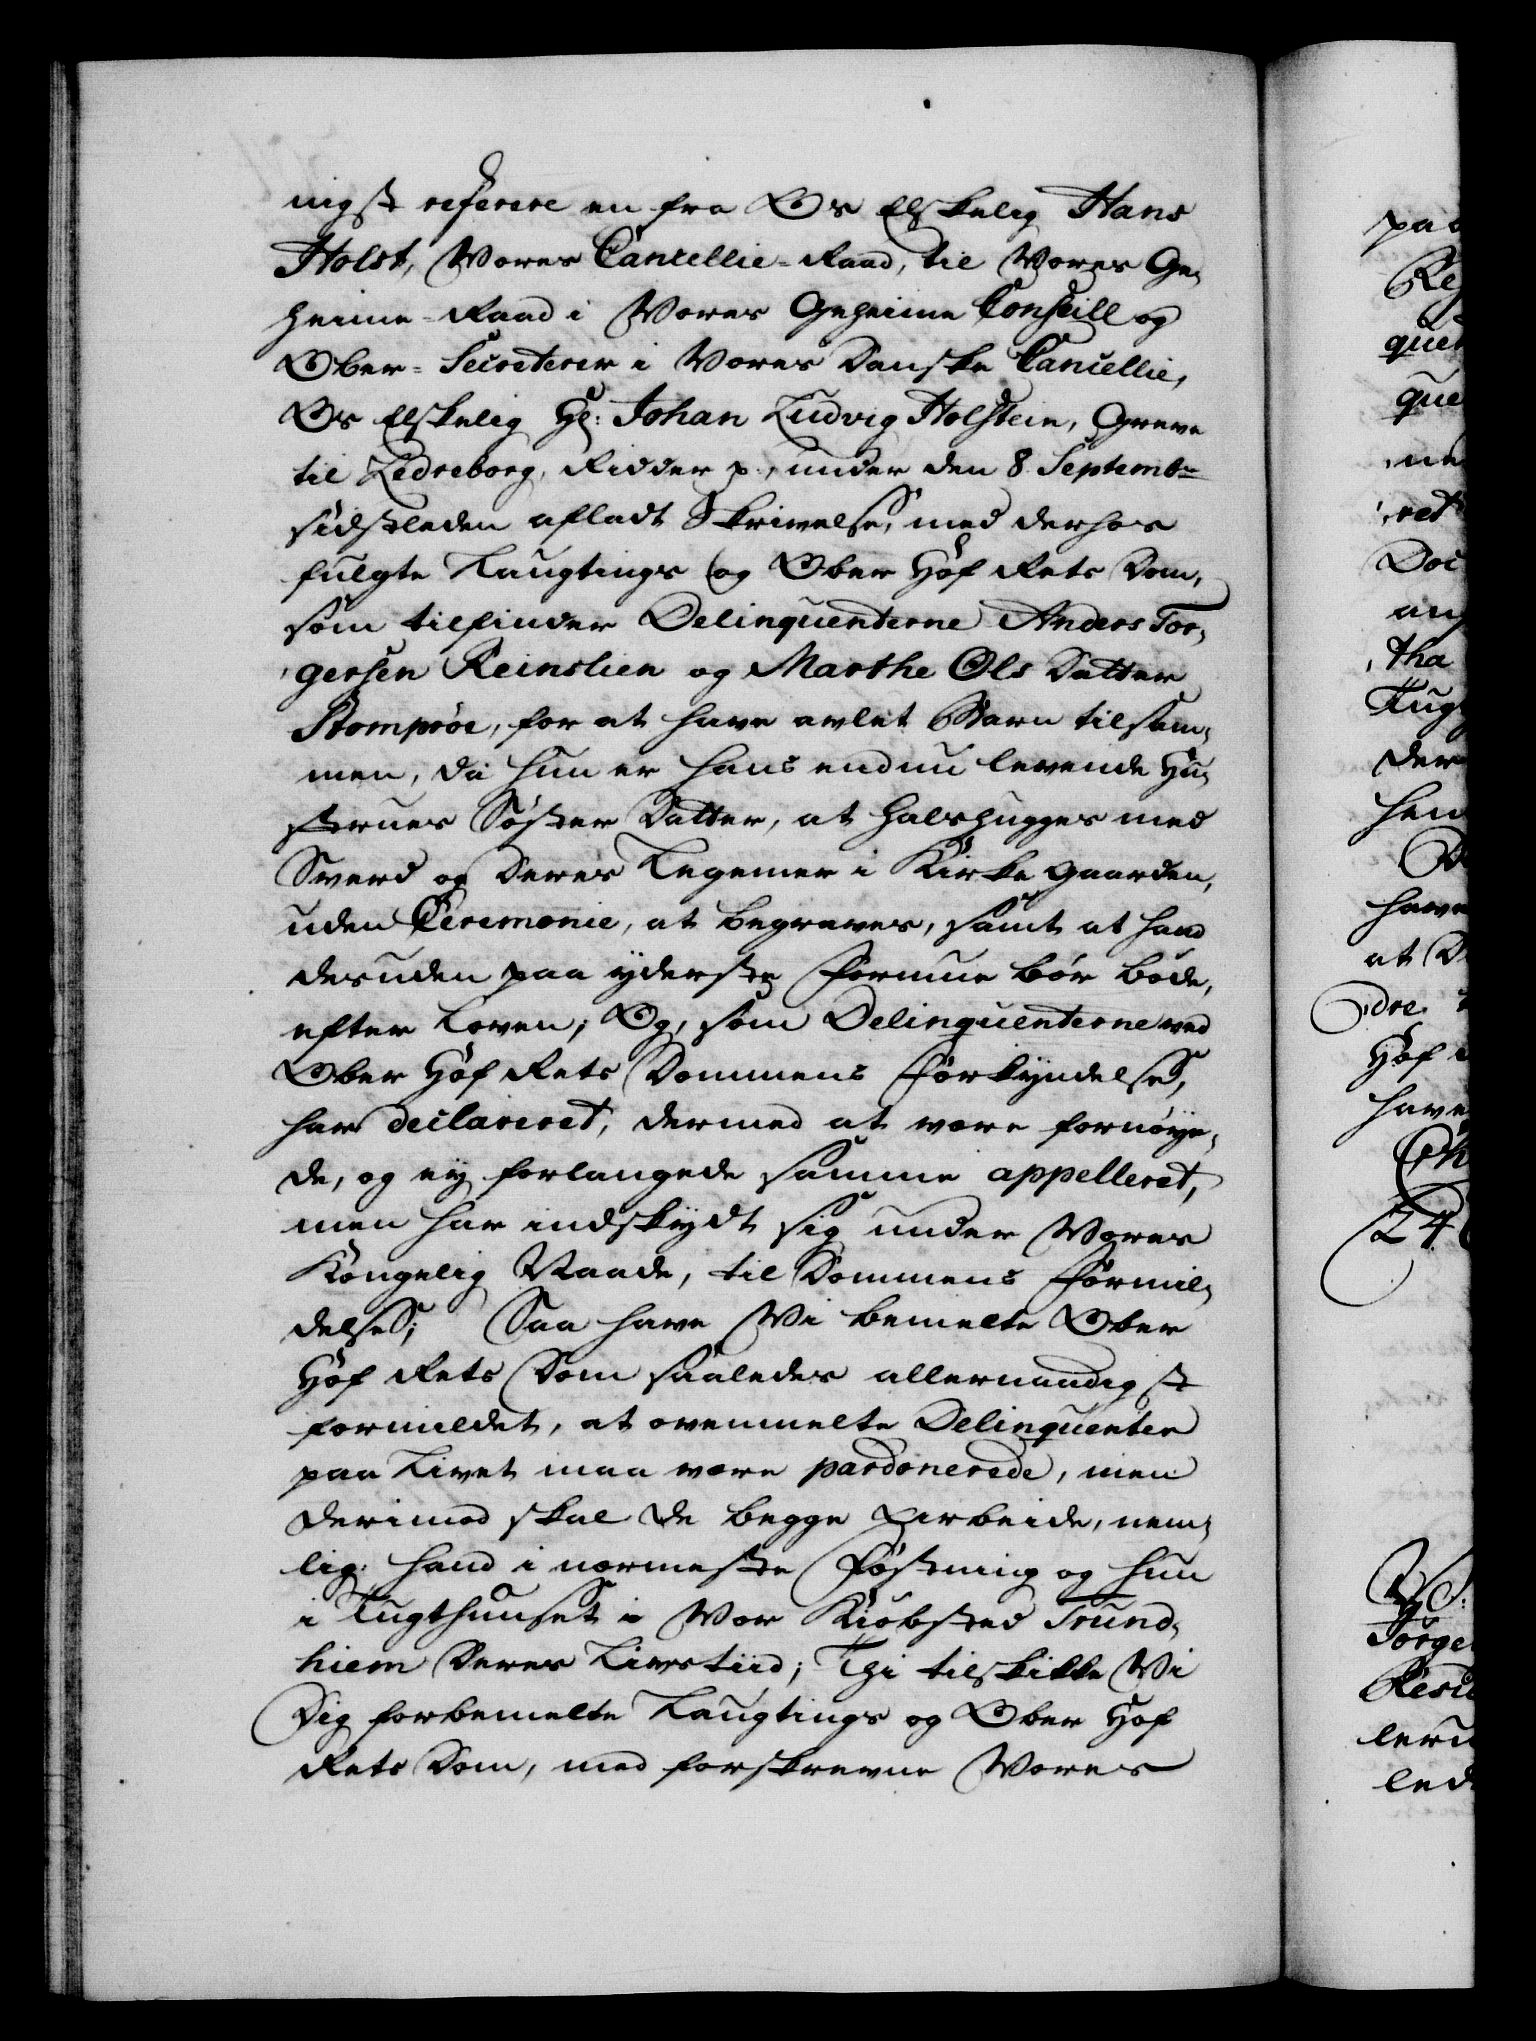 nigst referere en fra Os Elskelig Hans
Holst, Vores Cancellie-Raad, til Vores Ge-
heime-Raad i Vores Geheime Conseill og
Ober-Secreterer i Vores Danske Cancellie,
Os Elskelig Hr: Johan Ludvig Holstein, Greve
til Ledreborg, Ridder p., under den 8 Septembr
sidstleden afladt Skrivelse, med derhos
fulgte Laugtings og Ober Hof Rets Dom,
som tilfinder Delinquenterne Anders Tor-
gersen Reinslien og Marthe Ols Datter
Stomprøe, for at have avlet Barn tilsam-
men, da hun er hans endnu levende Hu-
strues Søster Datter, at halshugges med
Sverd og deres Legemer i Kirke Gaarden,
uden Ceremonie, at begraves, samt at hand
desuden paa yderste Formue bør bøde,
efter Loven; Og, som Delinquenterne ved
Ober Hof Rets Dommens Forkyndelse,
har declareret, dermed at være fornøye-
de, og ey forlangede samme appelleret,
men har indskydt sig under Vores
Kongelig Naade, til Dommens Formil-
delse; Saa have Vi bemelte Ober
Hof Rets Dom saaledes allernaadigst
formildet, at ovenmelte Delinquenter
paa Livet maa være pardonerede, men
derimod skal de begge arbeide, nem-
lig: hand i nærmeste Fæstning og hun
i Tugthuuset i Vor Kiøbsted Trund-
hiem deres Livstiid; Thi tilskikke Vi
Dig forbemelte Laugtings og Ober Hof
Rets Dom, med forskrevne Vores